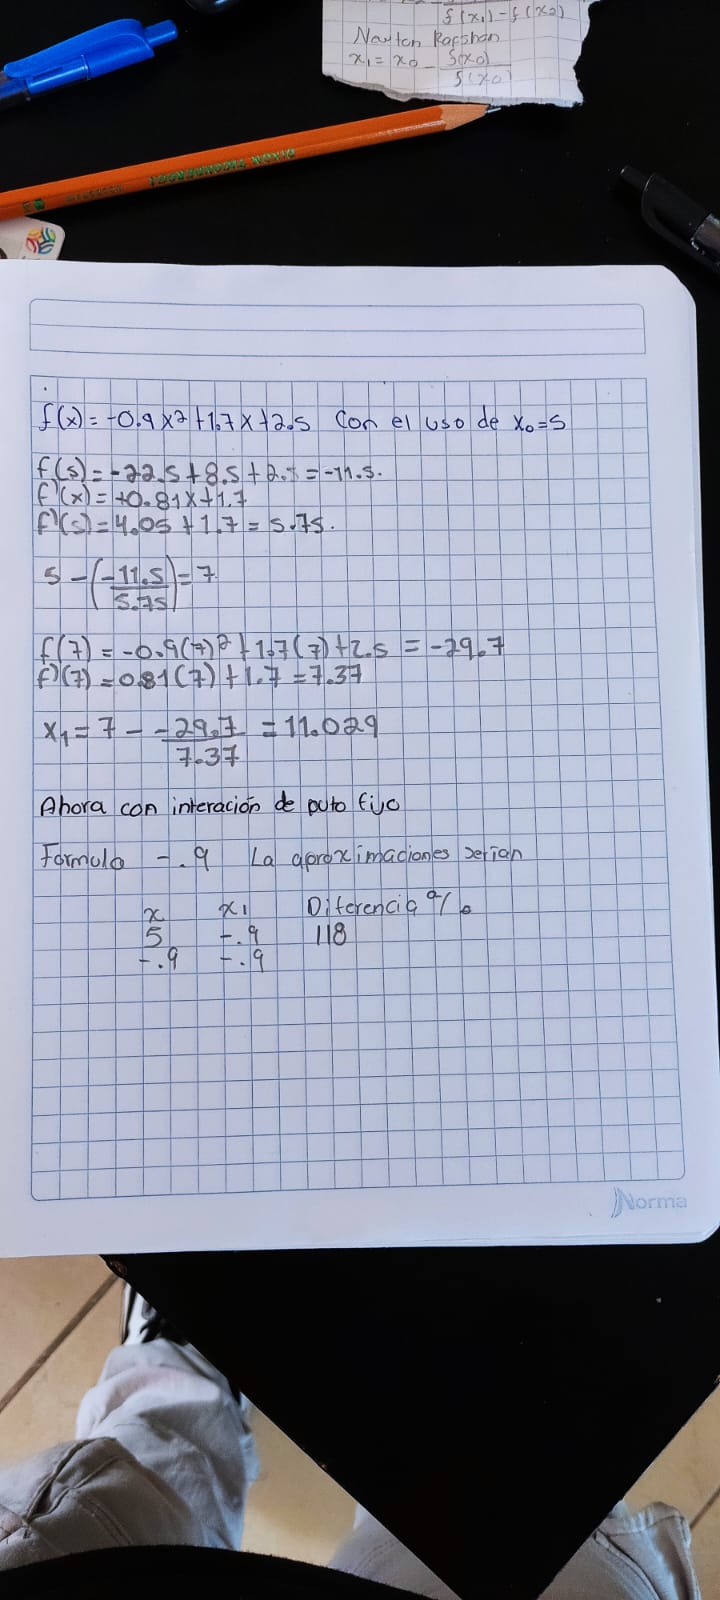 f(x1)-f(x2)
Newton Rapshon
x1 = x0 - f(x0)
f(x0)
f(x) = -0.9x²+1.7x+2.5 Con el uso de x0=5
f(5) = -22.5+8.5+2.5 = -11.5.
f'(x) = +0.81x+1.7
f'(5) = 4.05 + 1.7 = 5.75.
5 - (-11.5/5.75) = 7
f(7) = -0.9(7)²+1.7(7)+2.5 = -29.7
f'(7) = 0.81(7)+1.7 = 7.37
x1 = 7 - -29.7/7.37 = 11.029
Ahora con interación de puto fijo
Formula -.9 La aproximaciones serian
x x1 Diferencia %
5 -.9 118
-.9 -.9
Norma